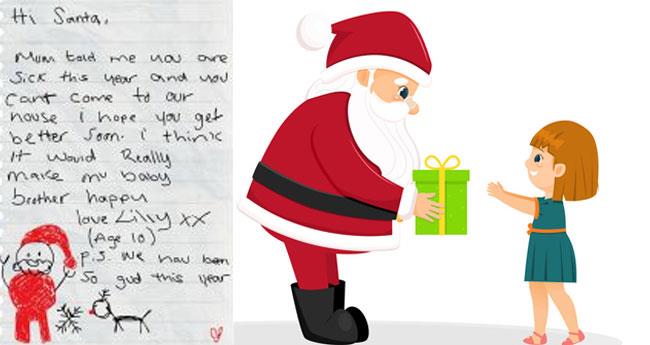 Hi Santa,
Mum told me you are
sick this year and you
cant come to our
house i hope you get
better soon. i think
it would Really
make my baby
brother happy
love Lilly xx
(Age 10)
P.S. We hav been
So gud this year